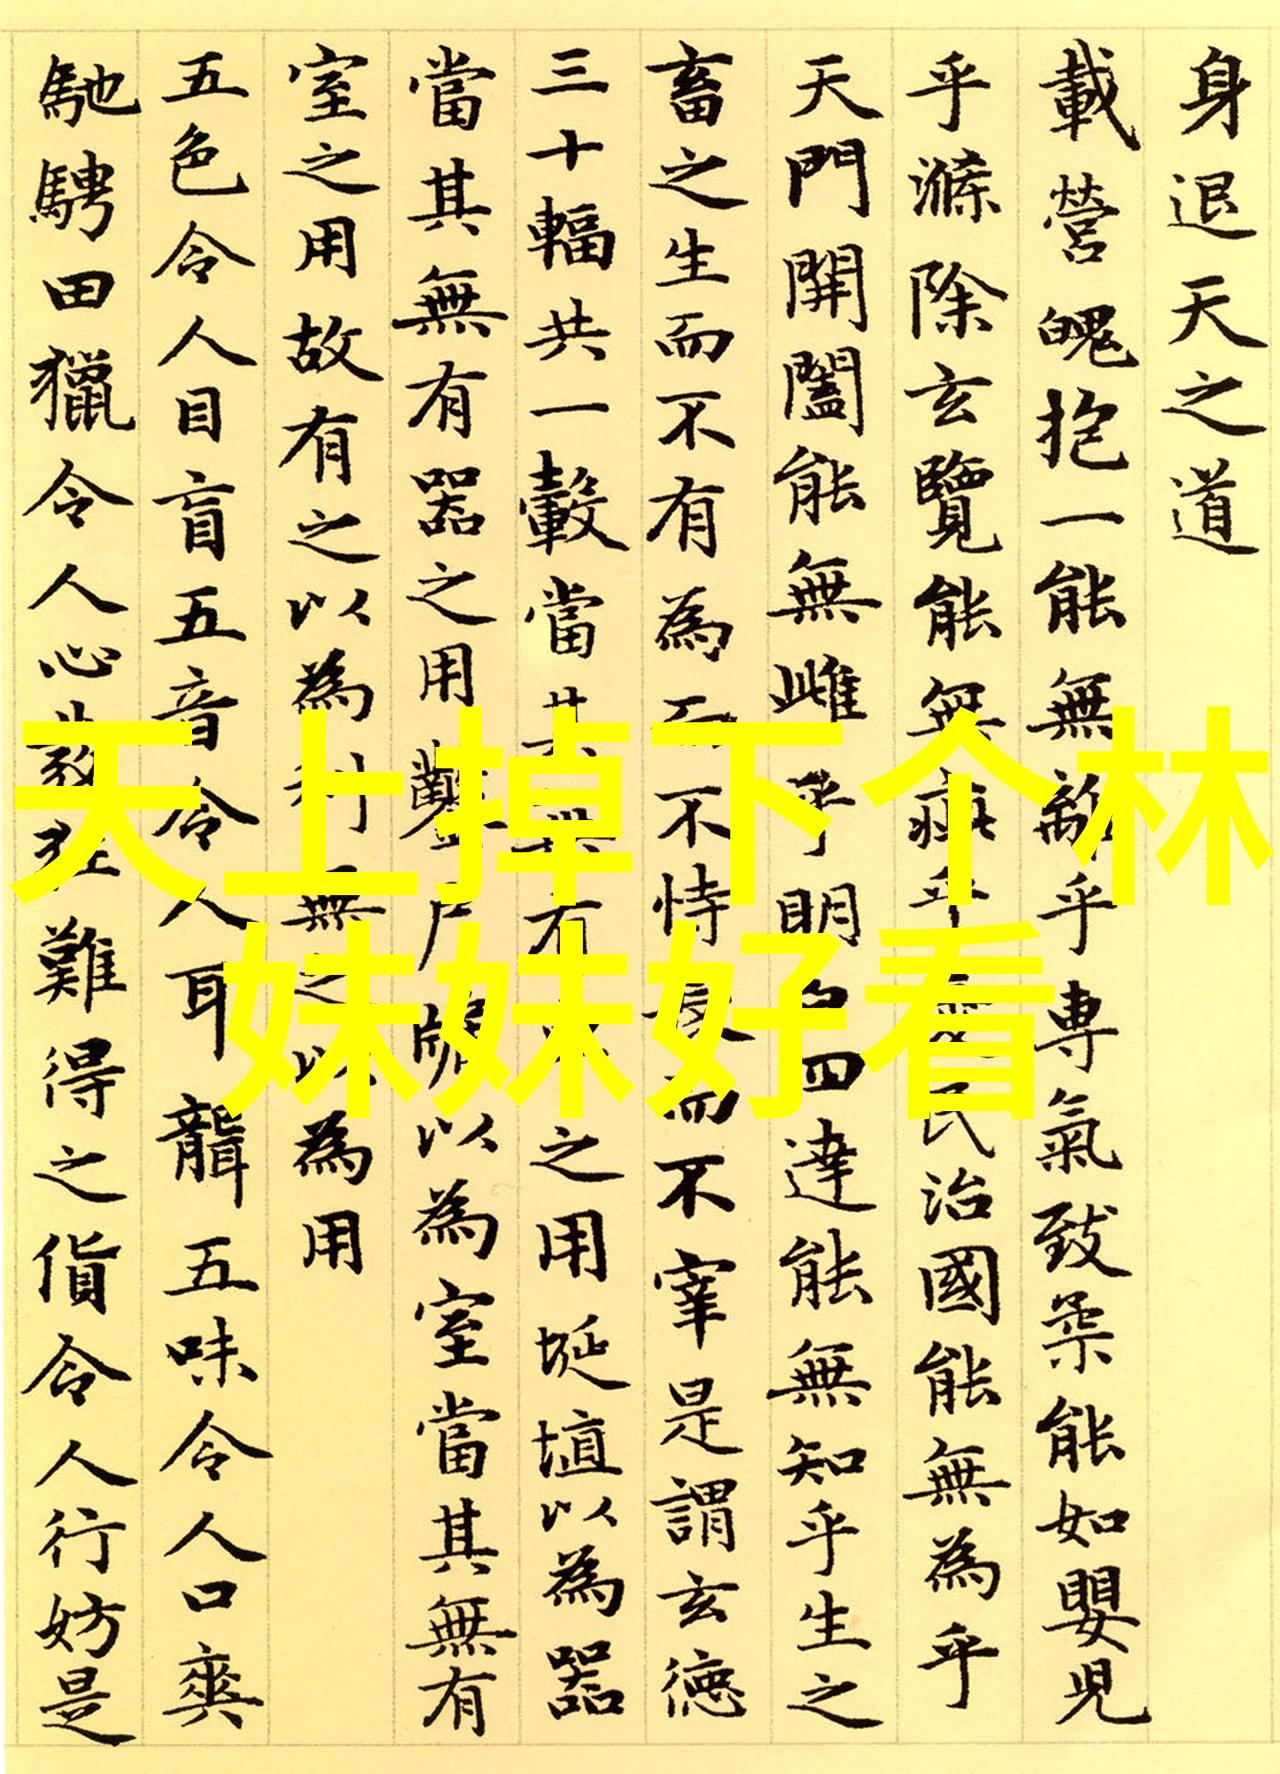 身退天之道
載營魄抱一能無離乎專氣致柔能如嬰児
乎滌除玄覽能無疵乎愛民治國能無為乎
天門開闔能無雌乎明白四達能無知乎生之
畜之生而不有為而不恃長而不宰是謂玄德
三十輻共一轂當其無有車之用埏埴以為器
當其無有器之用鑿戶牖以為室當其無有
室之用故有之以為利無之以為用
五色令人目盲五音令人耳聾五味令人口爽
馳騁田獵令人心發狂難得之貨令人行妨是
天上掉下个林
妹妹好看